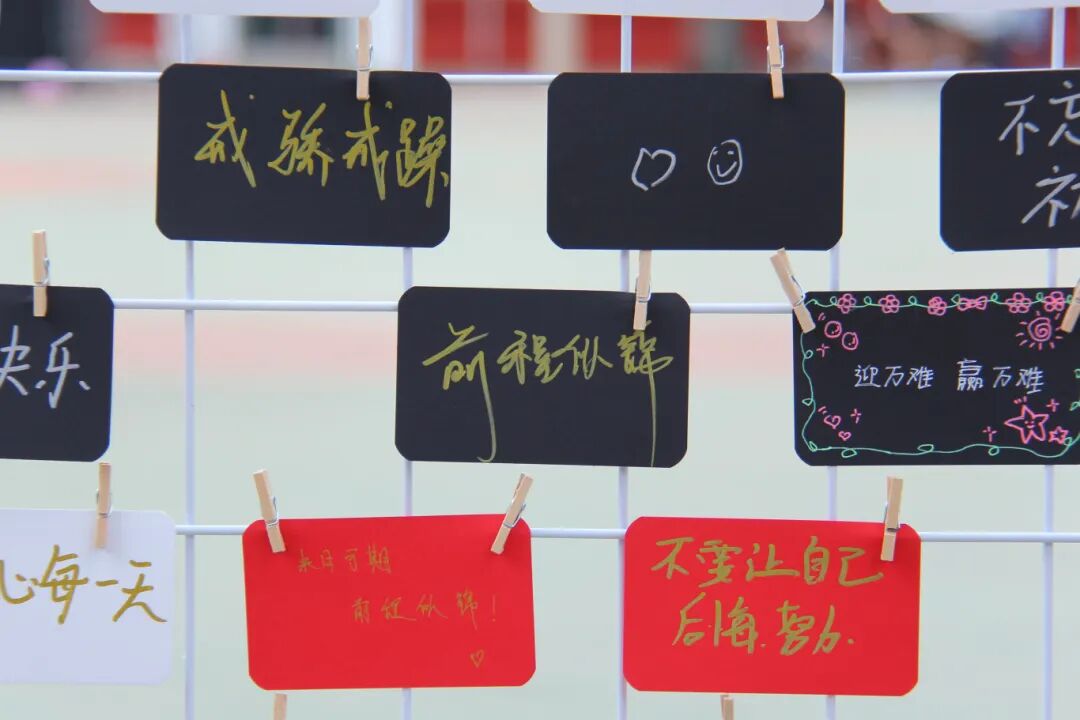 戒骄戒躁
不忘
初
快乐
前程似锦
迎万难 赢万难
心每一天
来日可期
前程似锦!
不要让自己
后悔.努力.